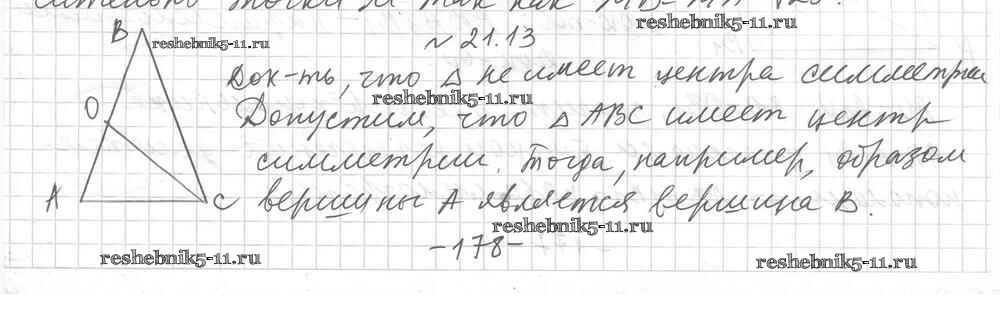 точки М так как
reshebnik5-11.ru
B
reshebnik5-11.ru
№ 21.13
Док-ть, что △ не имеет центра симметрии
reshebnik5-11.ru
O
Допустим, что △ ABC имеет центр
симметрии. Тогда, например, образом
A
C
вершины A является вершина B.
reshebnik5-11.ru
-178-
reshebnik5-11.ru
reshebnik5-11.ru